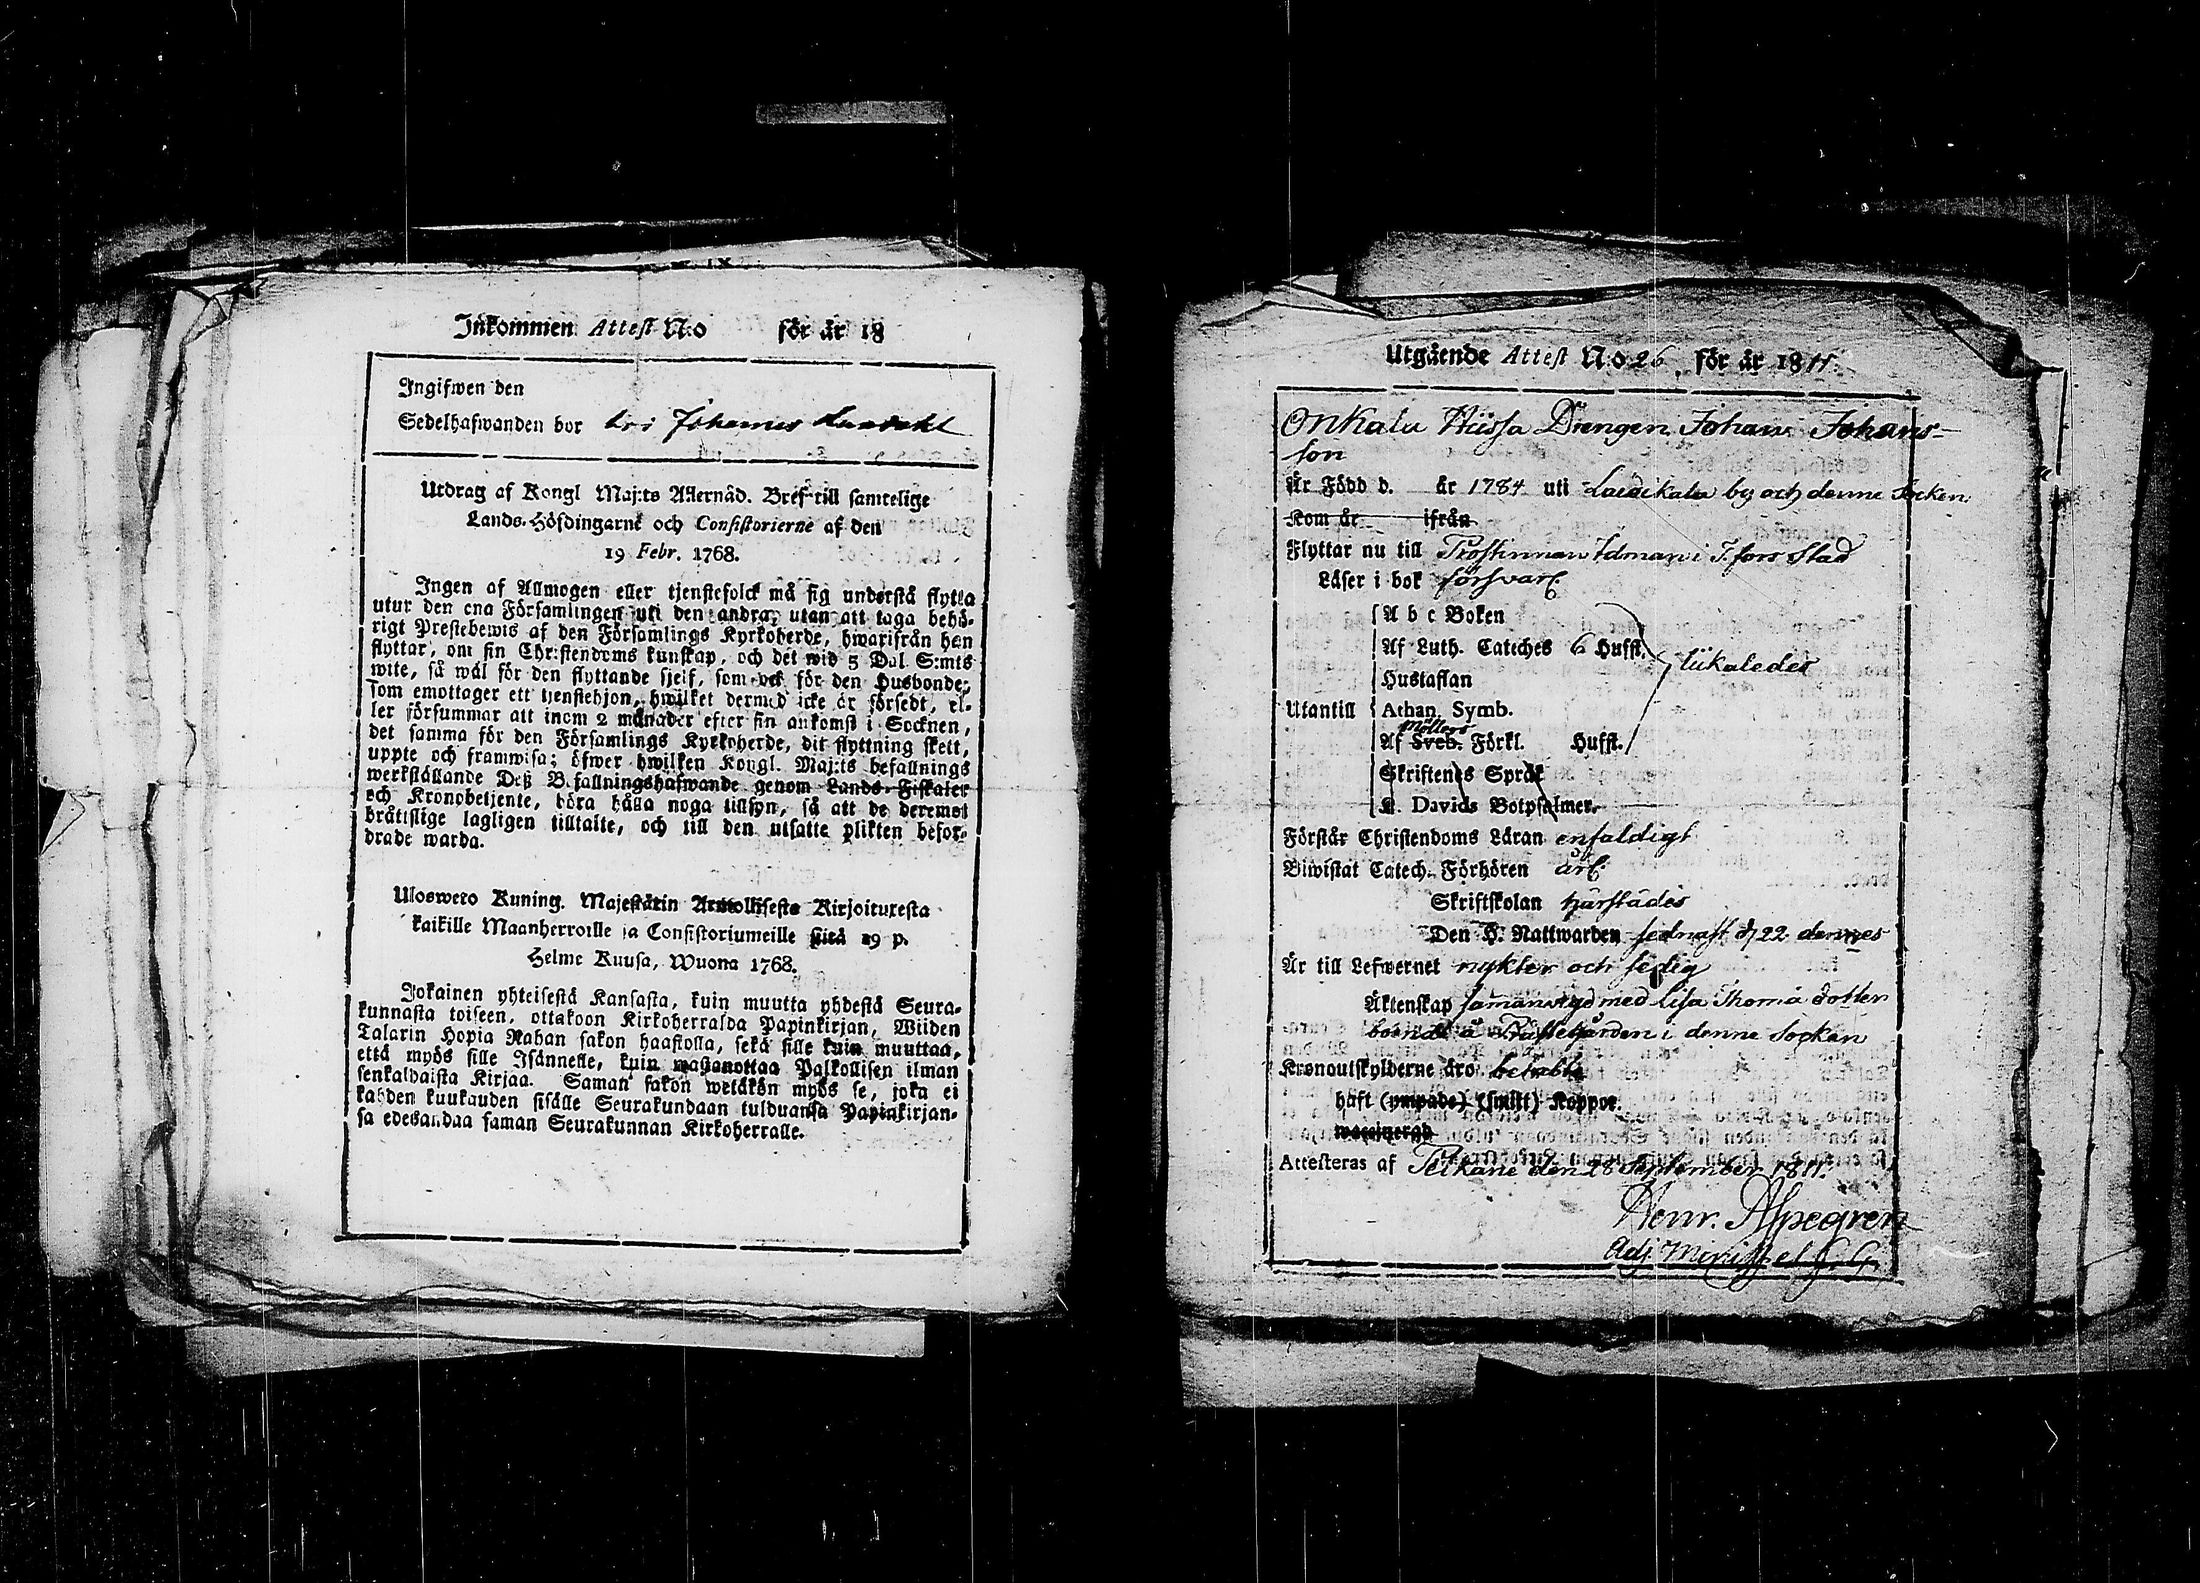 Inkommen Attest N:o för år 18
Ingifwen den
Sedelhafwanden bor Johannes
Utdrag af Kongl Maj:ts Allernåd. Bref till samtelige
Lands-Höfdingarne och Consistorierne af den
19 Febr. 1768.
Ingen af Allmogen eller tjenstefolck må sig understå flytta
utur den ena Församlingen uti den andra, utan att taga behö-
rigt Prestebewis af den Församlings Kyrkoherde, hwarifrån han
flyttar, om sin Christendoms kunskap, och det wid 5 Dal S:mts
wite, så wäl för den flyttande sjelf, som ock för den Husbonde,
som emottager ett tjenstehjon, hwilket dermed icke är försedt, el-
ler försummar att inom 2 månader efter sin ankomst i Socknen,
det samma för den Församlings Kyrkoherde, dit flyttning skett,
uppte och framwisa; öfwer hwilken Kongl. Maj:ts befallnings
werkställande Deß Befallningshafwande genom Lands-Fiskaler
och Kronobetjente, böra hålla noga tillsyn, så att de deremot
bråttslige lagligen tilltalte, och till den utsatte plikten befor-
drade warda.
Ulosweto Kuning. Majestätin Armollisesta Kirjoituxesta
kaikille Maanherroille ja Consistoriumeille sitä 19 p.
Helme Kuusa, Wuona 1768.
Jokainen yhteisestä Kansasta, kuin muutta yhdestä Seura-
kunnasta toiseen, ottakoon Kirkoherralda Papinkirjan, Wiiden
Talarin Hopia Rahan sakon haastolla, sekä sille kuin muuttaa,
että myös sille Isännelle, kuin wastanottaa Palkollisen ilman
senkaldaista Kirjaa. Saman sakon wetäkön myös se, joka ei
kahden kuukauden sisälle Seurakundaan tulduansa Papinkirjan-
sa edesandaa saman Seurakunnan Kirkoherralle.
Utgående Attest N:o 26. för år 1811.
Onkala Hiissa Drengen Johan Johans-
son
Är Född d. år 1784 uti Laidikala by och denne Socken
Kom år ifrån
Flyttar nu till Idman i T.fors Stad
Läser i bok försvarl.
A b c Boken
Af Luth. Cateches 6 Hufst.
Hustaflan
likaledes
Utantill Athan. Symb.
Möllers
Af Sveb. Förkl. Hufst.
Skriftenes Språk
K. Davids Botpsalmer.
Förstår Christendoms Läran enfaldigt
Biwistat Catech. Förhören årl:
Skriftskolan härstädes
Den H. Nattwarden sednast d 22 dennes
Är till Lefwernet nykter och sedig
Äktenskap samanvigd med Lisa Thomä dotter
boende å Prästegården i denne Sockan
Kronoutskylderne äro betalte
haft (ympade) (smitt) Koppor.
waccinerad
Attesteras af Pelkäne den 28 September 1811.
Henr. Aspegren
Adj. Minist.